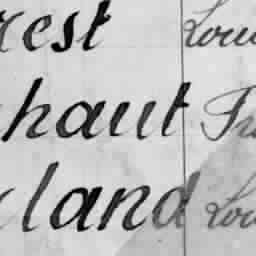 rest Lou
haut Fr
land Lou